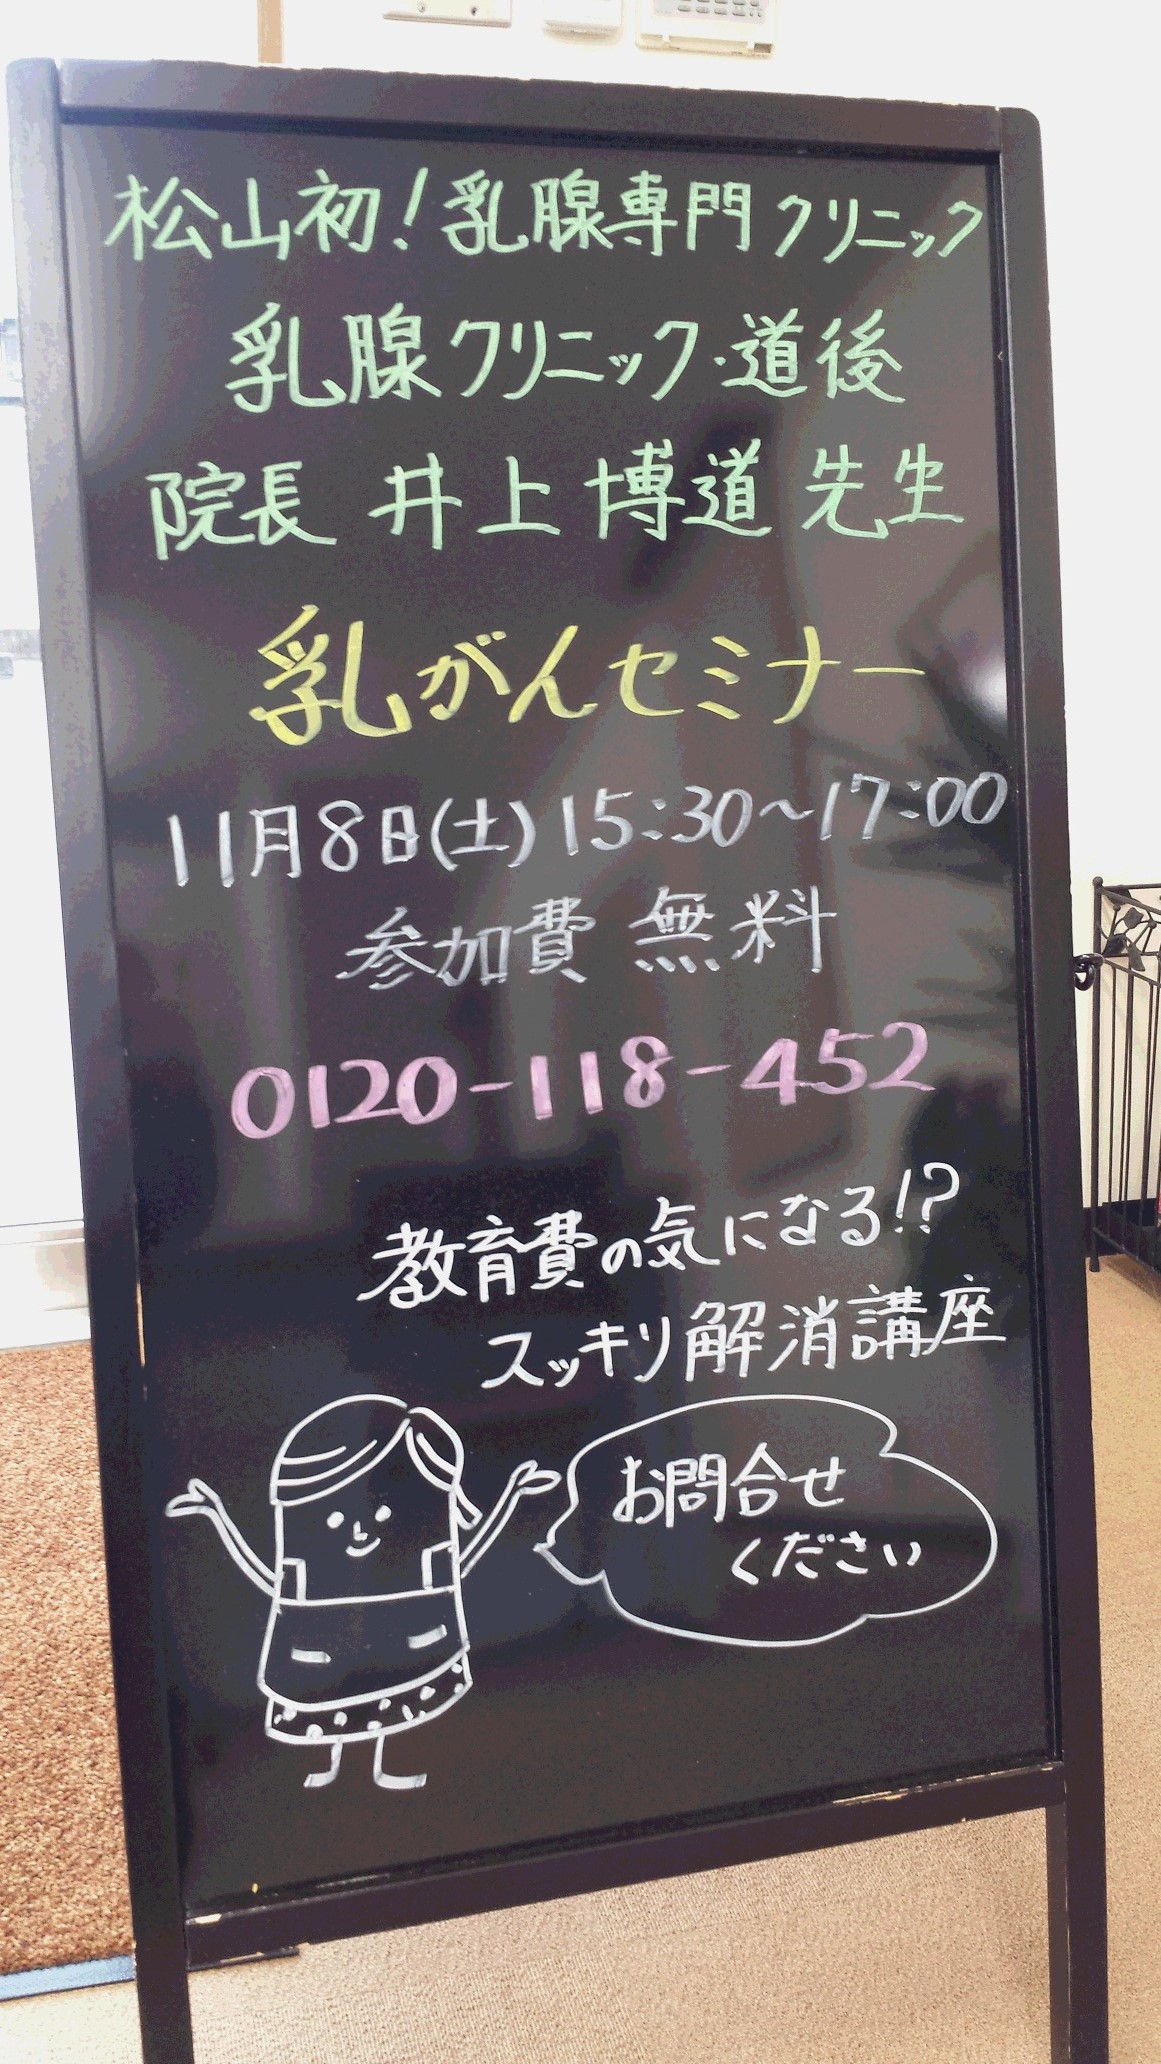 松山初!乳腺専門クリニック
乳腺クリニック·道後
院長 井上博道先生
乳がんセミナー
11月8日(土)15:30~17:00
参加費 無料
0120-118-452
教育費の気になる!?
スッキリ解消講座
お問合せ
ください